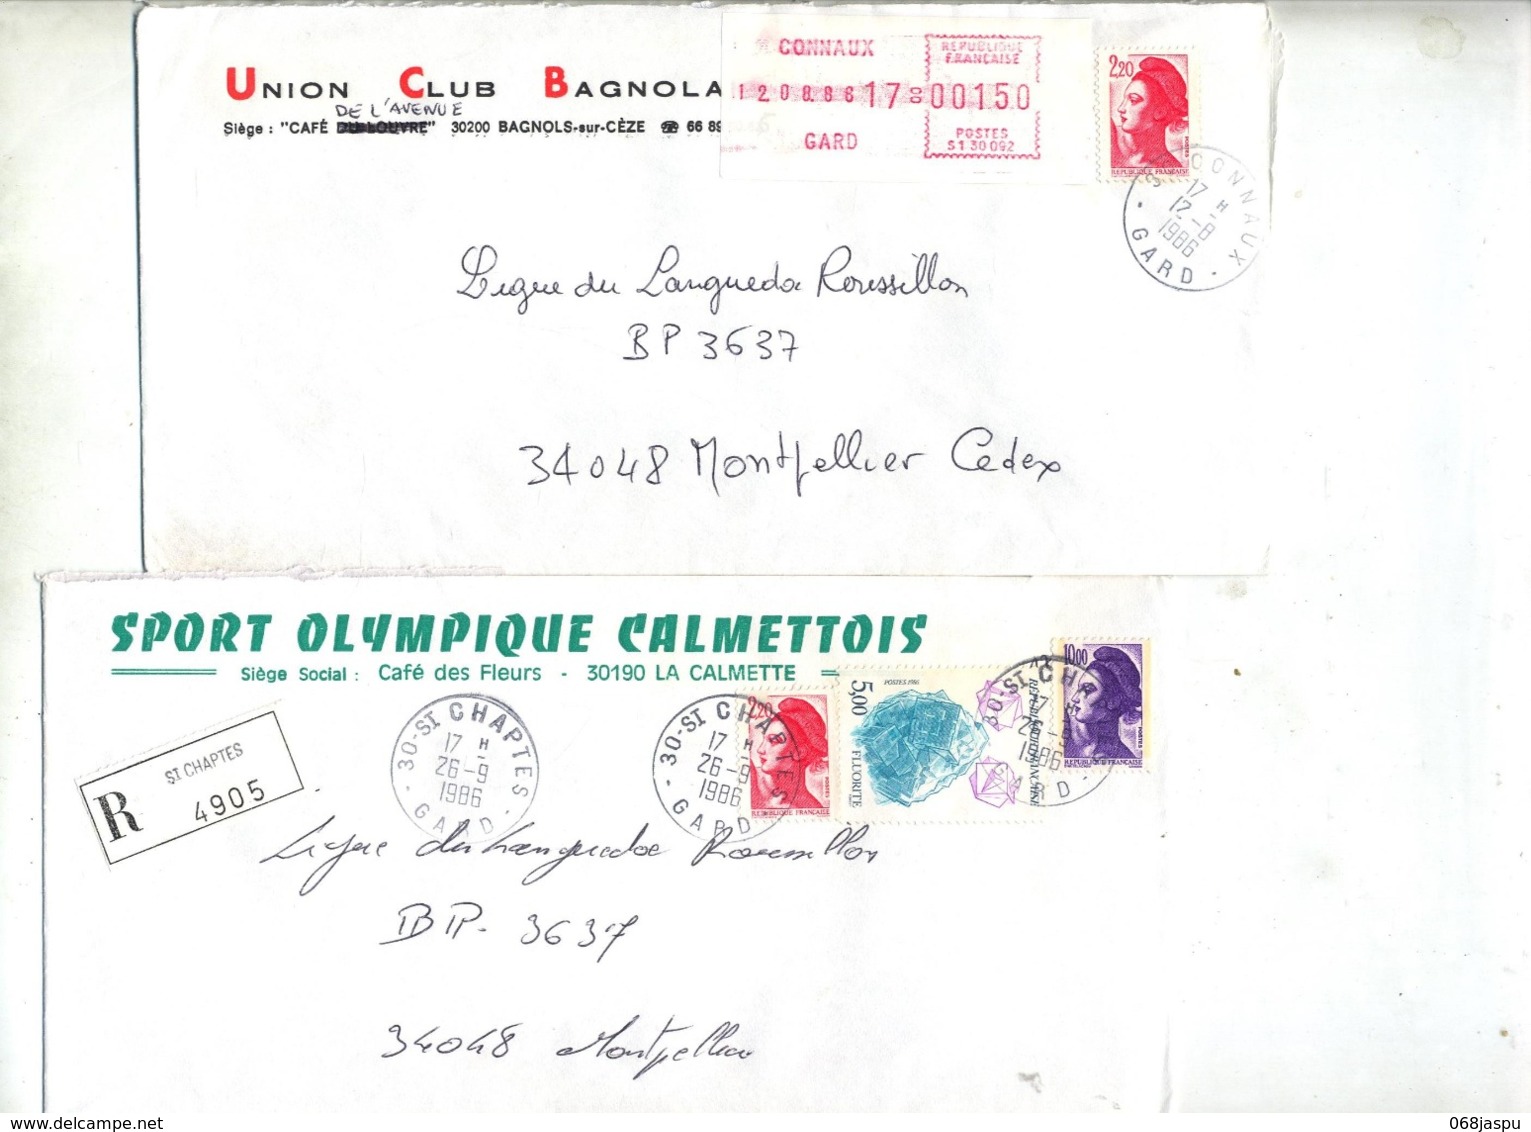 UNION CLUB BAGNOLA
DE L'AVENUE
Siège : "CAFÉ DU LOUVRE" 30200 BAGNOLS-sur-CÈZE ☎ 66 89
CONNAUX
12 08 86 17 00
GARD
REPUBLIQUE
FRANCAISE
00150
POSTES
S1 30 092
2,20
POSTES
REPUBLIQUE FRANÇAISE
CONNAUX
17 H
12-8
1986
GARD
Ligue du Languedoc Roussillon
BP 3637
34048 Montpellier Cedex
SPORT OLYMPIQUE CALMETTOIS
Siège Social : Café des Fleurs - 30190 LA CALMETTE
R
ST CHAPTES
4905
30-ST CHAPTES
17 H
26-9
1986
GARD
30-ST CHAPTES
17 H
26-9
1986
GARD
2,20
POSTES
REPUBLIQUE FRANÇAISE
POSTES 1986
5,00
FLUORITE
REPUBLIQUE FRANÇAISE
30-ST CHAP
17 H
26-9
1986
GARD
10,00
POSTES
REPUBLIQUE FRANÇAISE
Ligue du Languedoc Roussillon
BP. 3637
34048 Montpellier
068jaspu